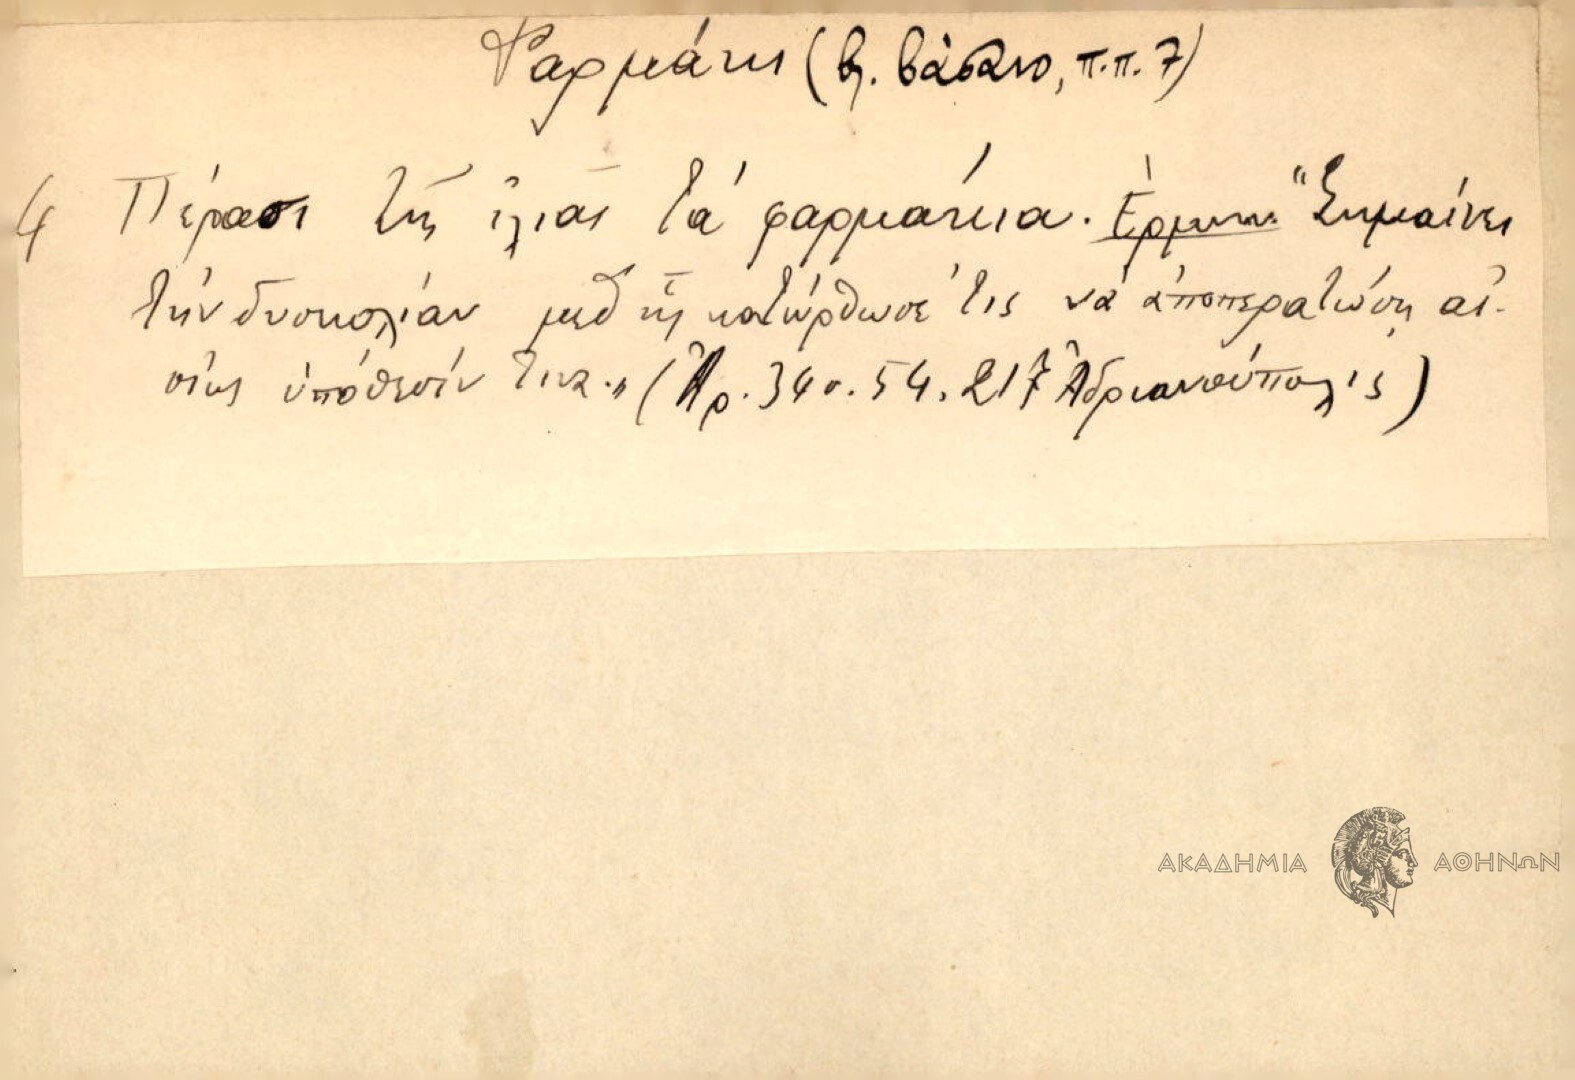 Φαρμάκι (βλ. βάσανο, π.π. 7)
4 Πέρασε τῆς ἐλιᾶς τὰ φαρμάκια. Ἑρμην. "Σημαίνει
τὴν δυσκολίαν μεθ' ἧς κατώρθωσέ τις νὰ ἀποπερατώσῃ αἰ-
σίως ὑπόθεσίν τινα." (Ἀρ. 340. 54. 217 Ἀδριανούπολις)
ΑΚΑΔΗΜΙΑ ΑΘΗΝΩΝ